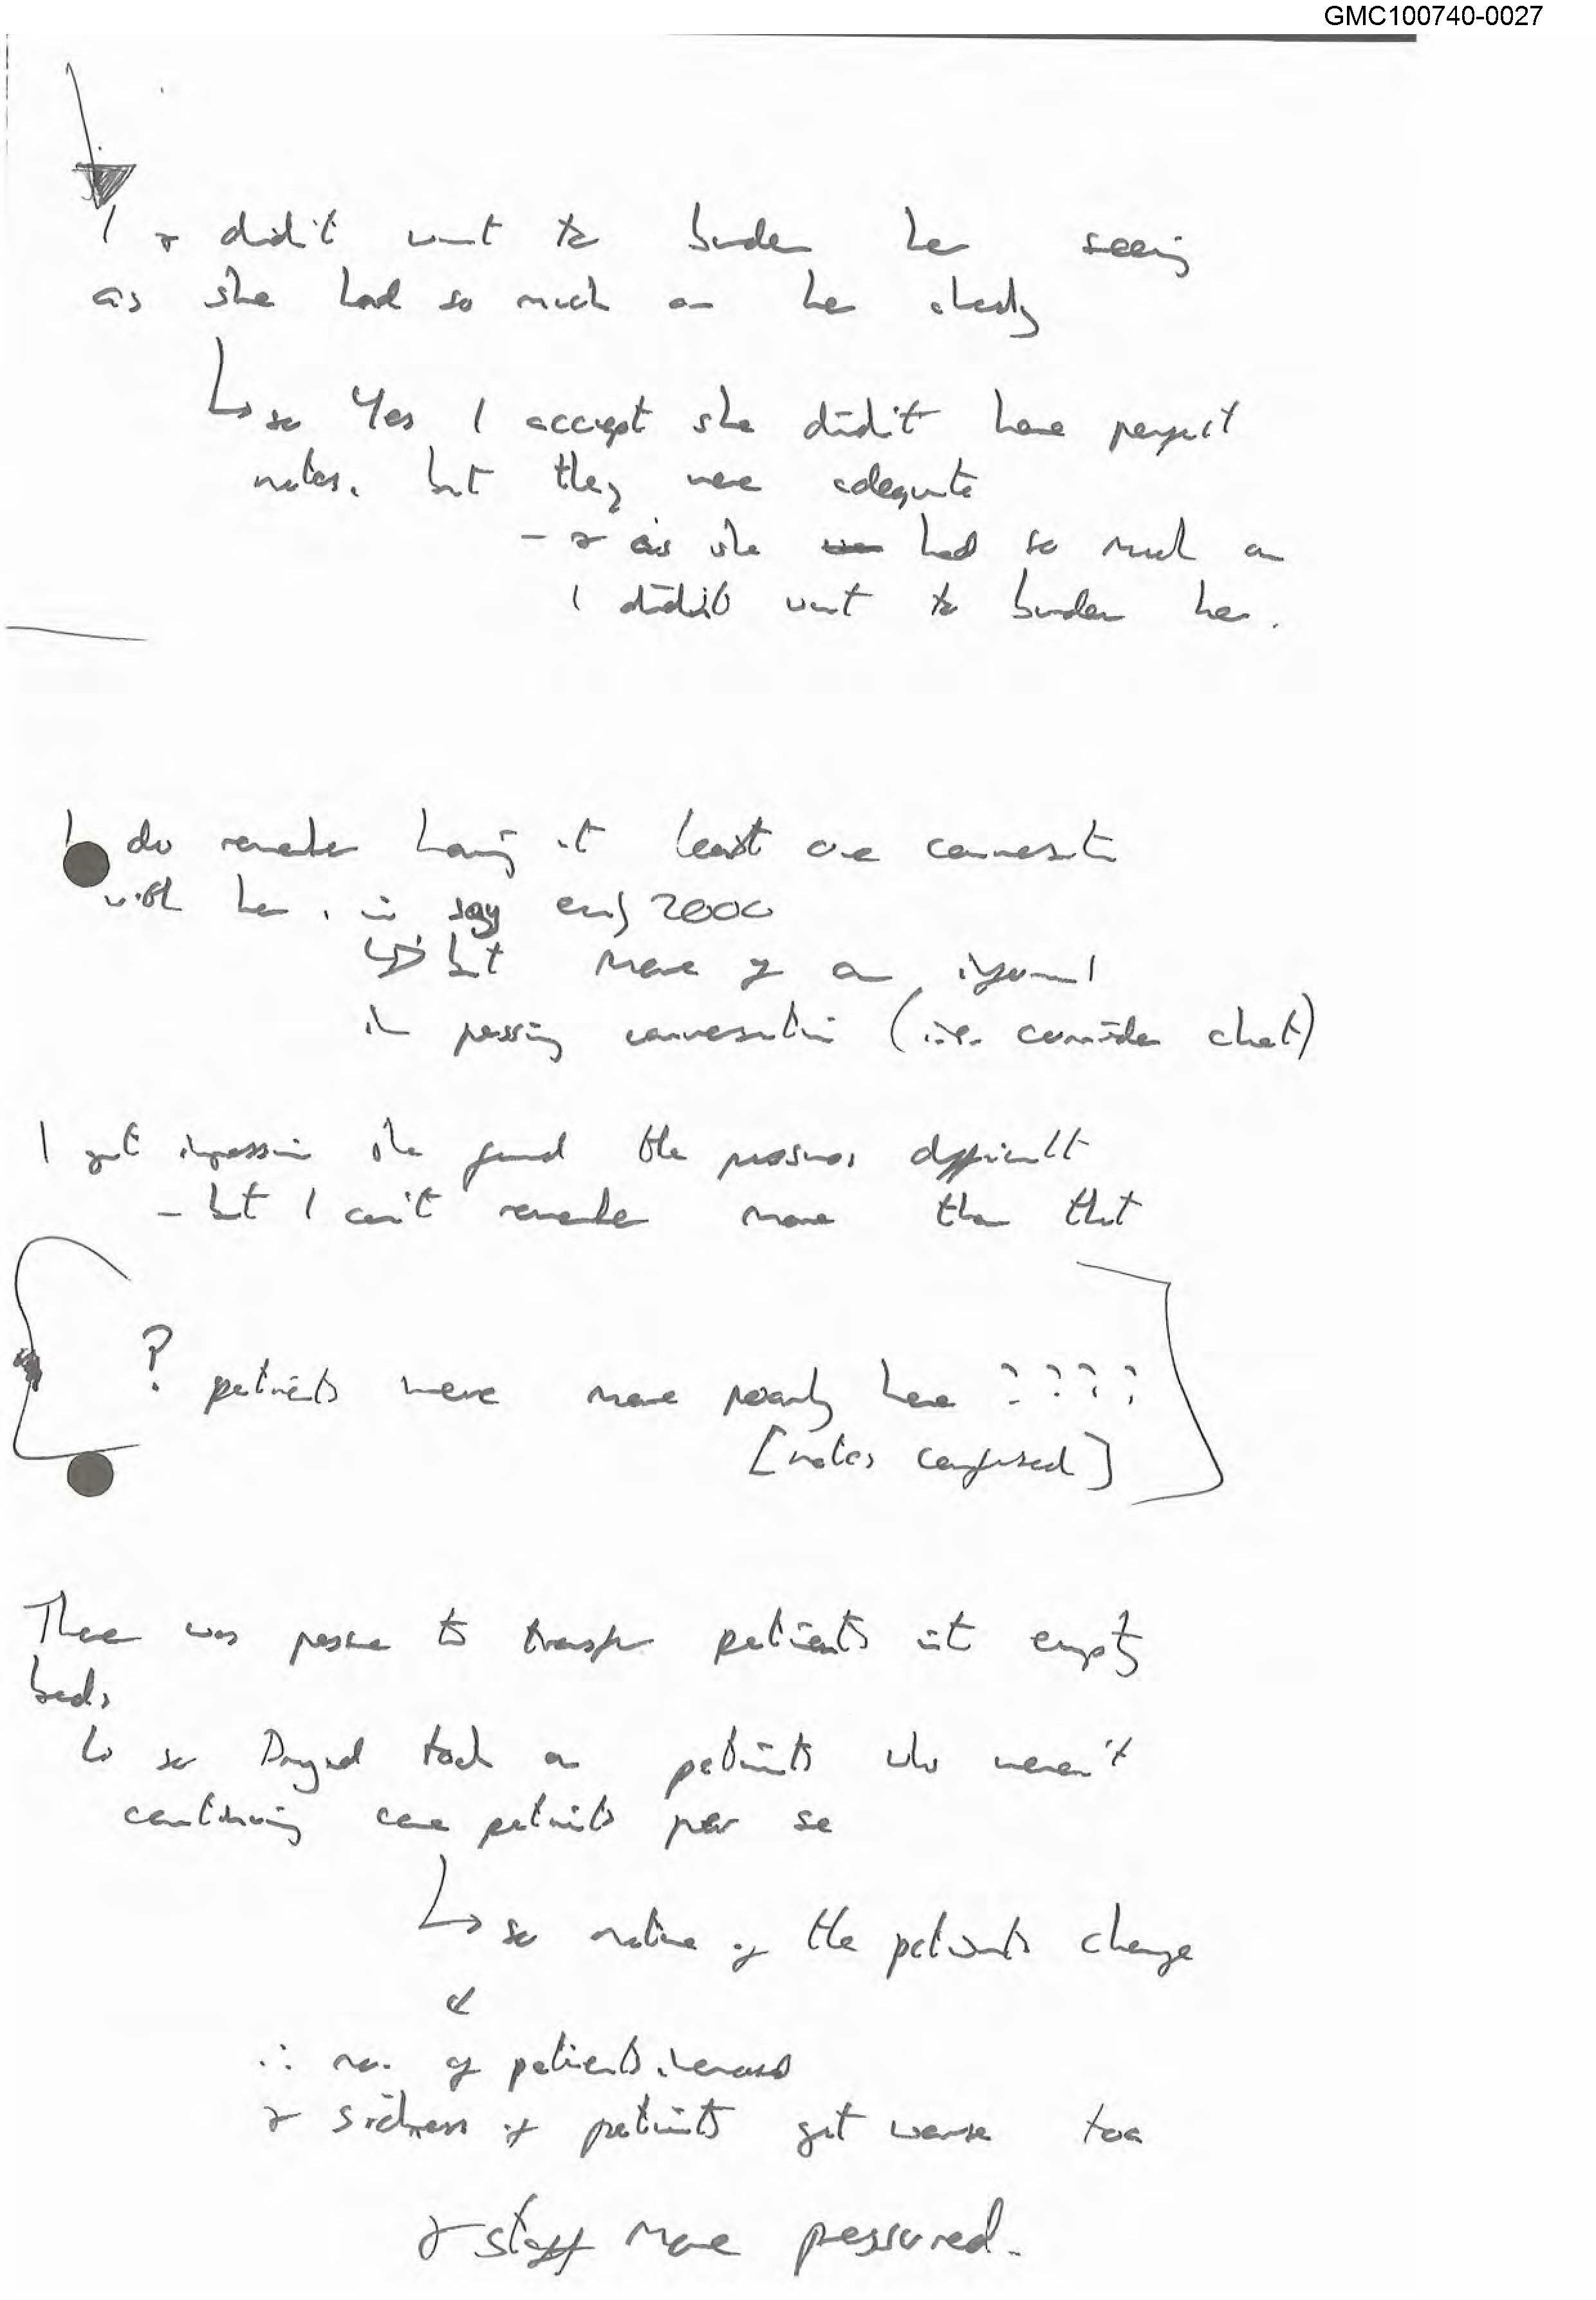 GMC100740-0027
I & didn't want to burden her seeing
as she had so much on her already
↳ so Yes I accept she didn't have perfect
notes. but they were adequate
- & as she had so much on
I didn't want to burden her.
I do remember having at least one conversation
with her, in say early 2000
↳ but more of an informal
in passing conversation (i.e. corridor chat)
I got impression she found the pressures difficult
- but I can't remember more than that
? patients were more poorly here ????
[notes confused]
There was pressure to transfer patients into empty
beds
↳ so Dryad took on patients who weren't
continuing care patients per se
↳ so nature of the patients change
&
∴ no. of patients increased
& sickness of patients got worse too
& staff more pressured.